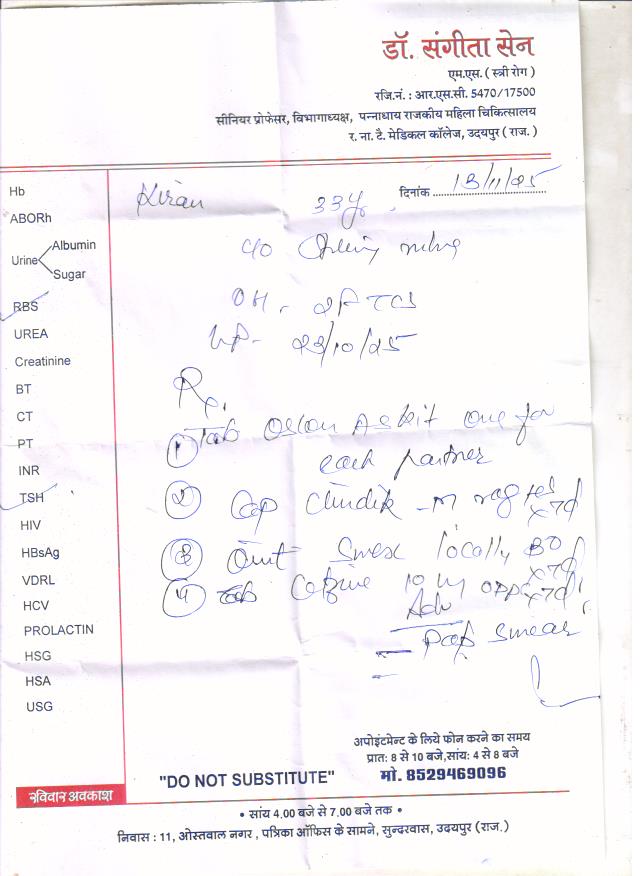 डॉ. संगीता सेन
एम.एस. ( स्त्री रोग )
रजि.नं. : आर.एस.सी. 5470/17500
सीनियर प्रोफेसर, विभागाध्यक्ष, पन्नाधाय राजकीय महिला चिकित्सालय
र. ना. टै. मेडिकल कॉलेज, उदयपुर ( राज. )
दिनांक 13/11/25
Kiran 33y
Hb
ABORh
Urine Albumin
Sugar
RBS
UREA
Creatinine
BT
CT
PT
INR
TSH
HIV
HBsAg
VDRL
HCV
PROLACTIN
HSG
HSA
USG
C/O
OH -
LMP - 23/10/25
Rx
1 Tab kit one for
each partner
2 Cap x7d
3 Oint locally BD x7d
4 Tab x7d
Adv
- Pap smear
अपोइंटमेन्ट के लिये फोन करने का समय
प्रात: 8 से 10 बजे,सांय: 4 से 8 बजे
"DO NOT SUBSTITUTE" मो. 8529469096
रविवार अवकाश
• सांय 4.00 बजे से 7.00 बजे तक •
निवास : 11, ओस्तवाल नगर , पत्रिका ऑफिस के सामने, सुन्दरवास, उदयपुर (राज.)